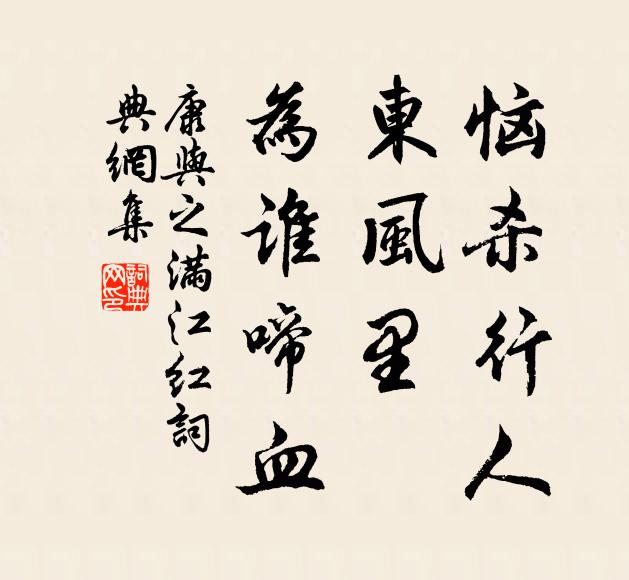 恼杀行人
東風里
為誰啼血
康與之满江红詞
典網集
詞典网印